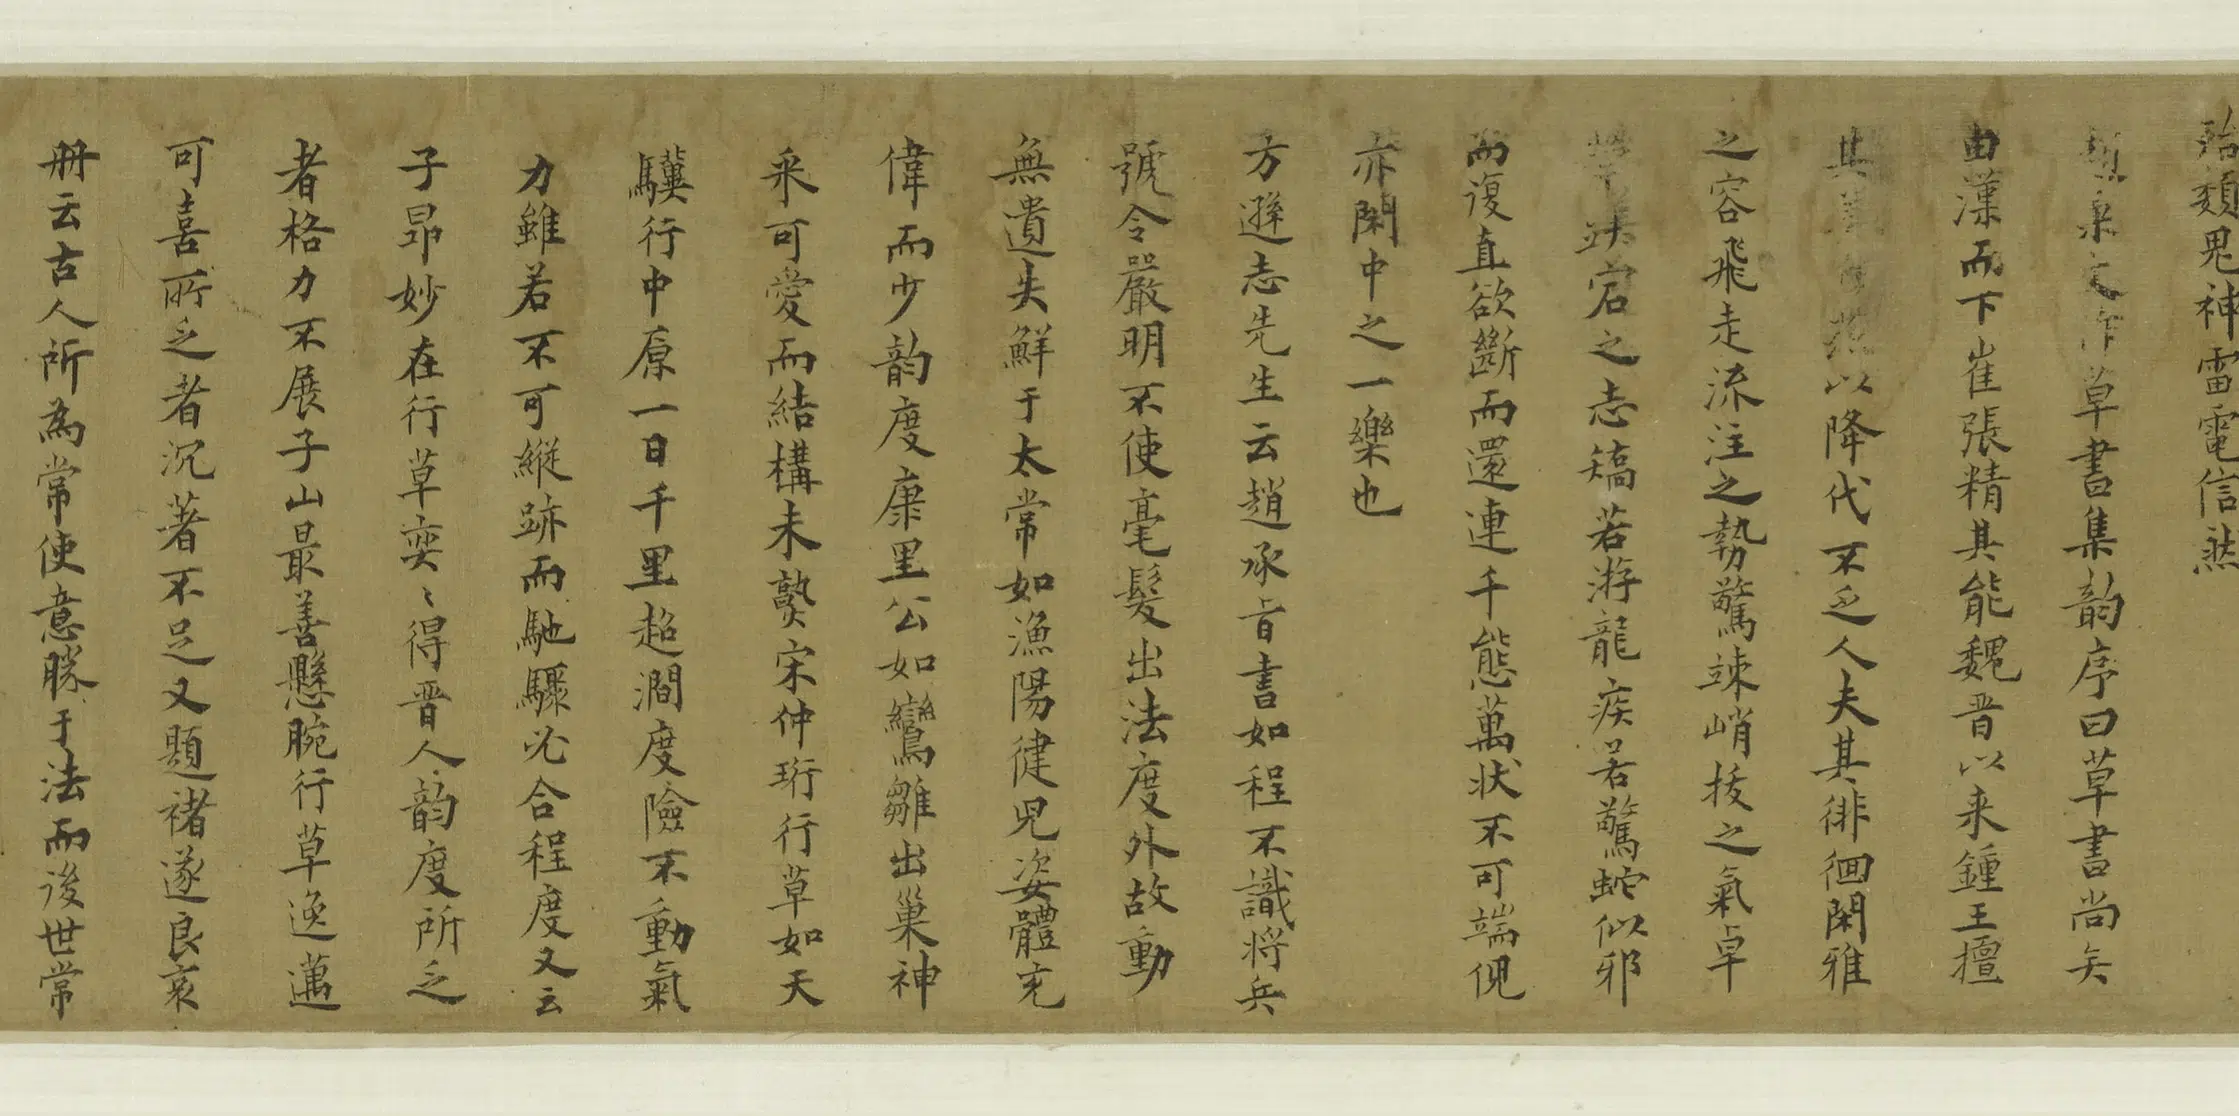 殆類鬼神雷電信然
草書集韵序曰草書尚矣
由漢而下崔張精其能魏晋以来鍾王擅
其以降代不乏人夫其徘徊閑雅
之容飛走流注之勢驚竦峭拔之氣卓
跌宕之志矯若游龍疾若驚蛇似邪
而復直欲斷而還連千態萬状不可端倪
亦閑中之一樂也
方遜志先生云趙承旨書如程不識将兵
號令嚴明不使毫髮出法度外故動
無遺失鮮于太常如漁陽健兒姿體充
偉而少韵度康里公如鸞雛出巢神
采可愛而結構未熟宋仲珩行草如天
驥行中原一日千里超澗度險不動氣
力雖若不可縱跡而馳驟必合程度又云
子昂妙在行草奕〻得晋人韵度所乏
者格力不展子山最善懸腕行草逸邁
可喜所乏者沉著不足又題褚遂良哀
冊云古人所為常使意勝于法而後世常